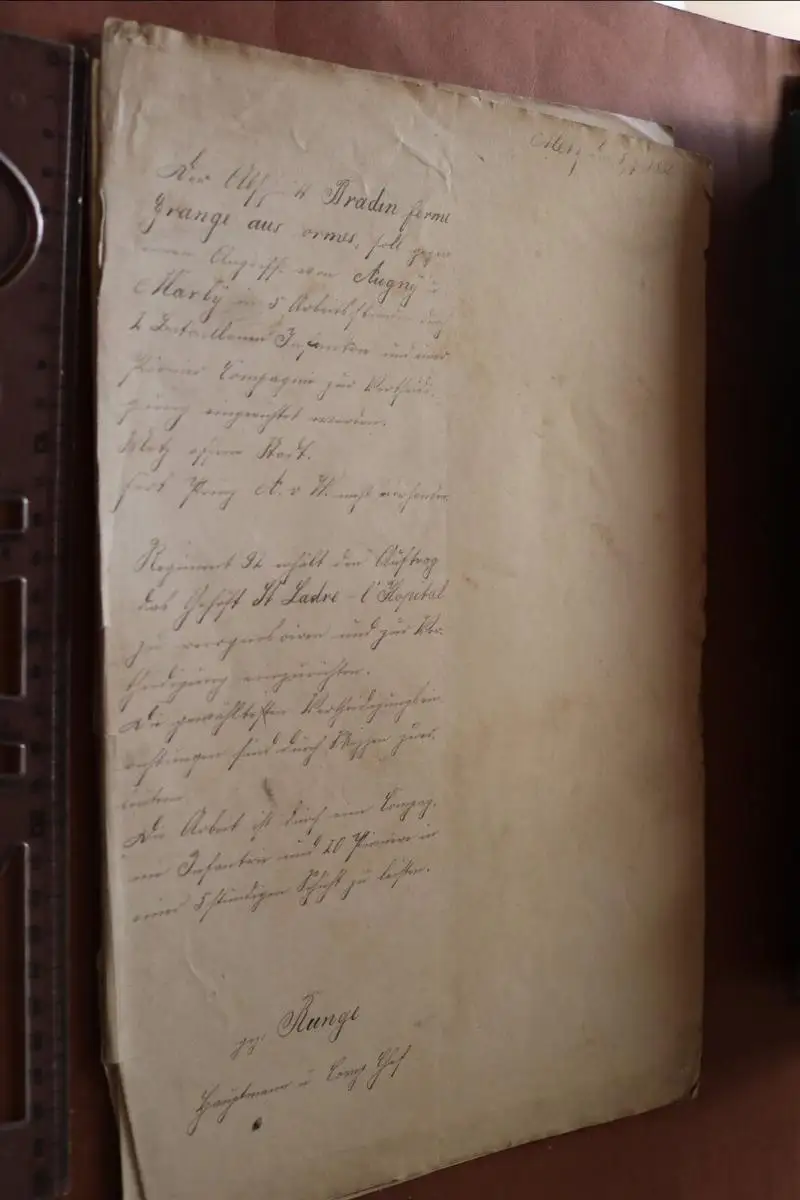 Metz
Der Abschnitt Bradin ferme
Grange aus ormes, soll gegen
einen Angriff von Augny u
Marly in 5 Arbeitsstunden durch
2 Bataillone Infanterie und einer
Pionier Compagnie zur Verthei-
digung eingerichtet werden.
Metz offene Stadt.
Fort Prinz A. v W. nicht vorhanden.
Regiment 92 erhält den Auftrag
das Gehöft St Ladre - l'Hopital
zu recognosciren und zur Ver-
theidigung einzurichten.
Die gewählten Vertheidigungsein-
richtungen sind durch Skizzen zu er-
läutern
Die Arbeit ist durch eine Compag-
nie Infanterie und 20 Pioniere in
einer 5stündigen Schicht zu leisten.
gez. Runge
Hauptmann u Comp Chef